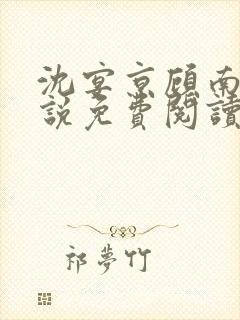 沈宴京顾南
說免費閱讀
祁夢竹